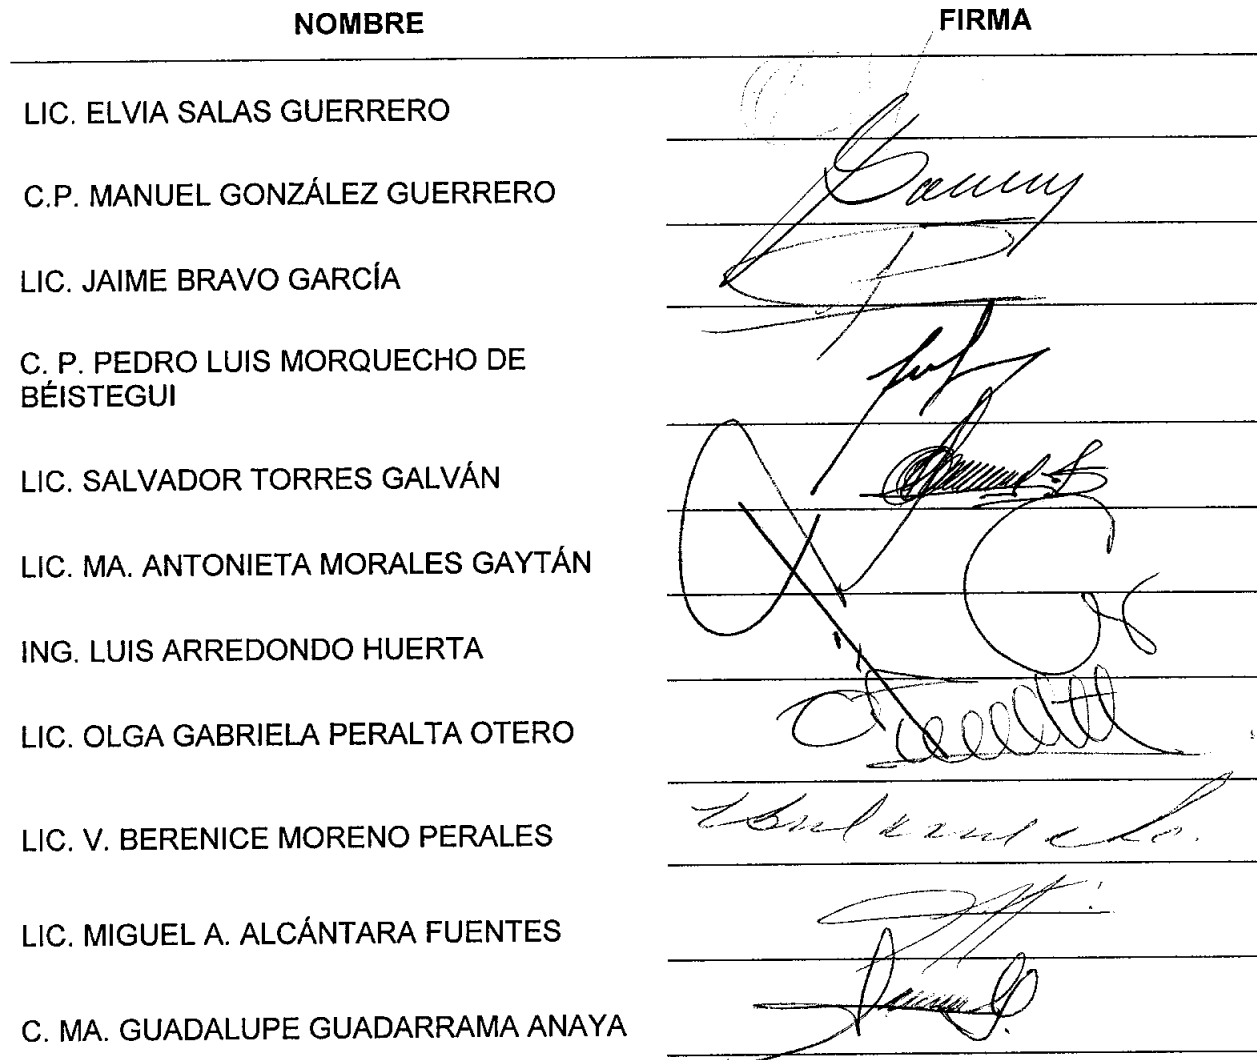 NOMBRE FIRMA
LIC. ELVIA SALAS GUERRERO
C.P. MANUEL GONZÁLEZ GUERRERO
LIC. JAIME BRAVO GARCÍA
C. P. PEDRO LUIS MORQUECHO DE
BÉISTEGUI
LIC. SALVADOR TORRES GALVÁN
LIC. MA. ANTONIETA MORALES GAYTÁN
ING. LUIS ARREDONDO HUERTA
LIC. OLGA GABRIELA PERALTA OTERO
LIC. V. BERENICE MORENO PERALES
LIC. MIGUEL A. ALCÁNTARA FUENTES
C. MA. GUADALUPE GUADARRAMA ANAYA